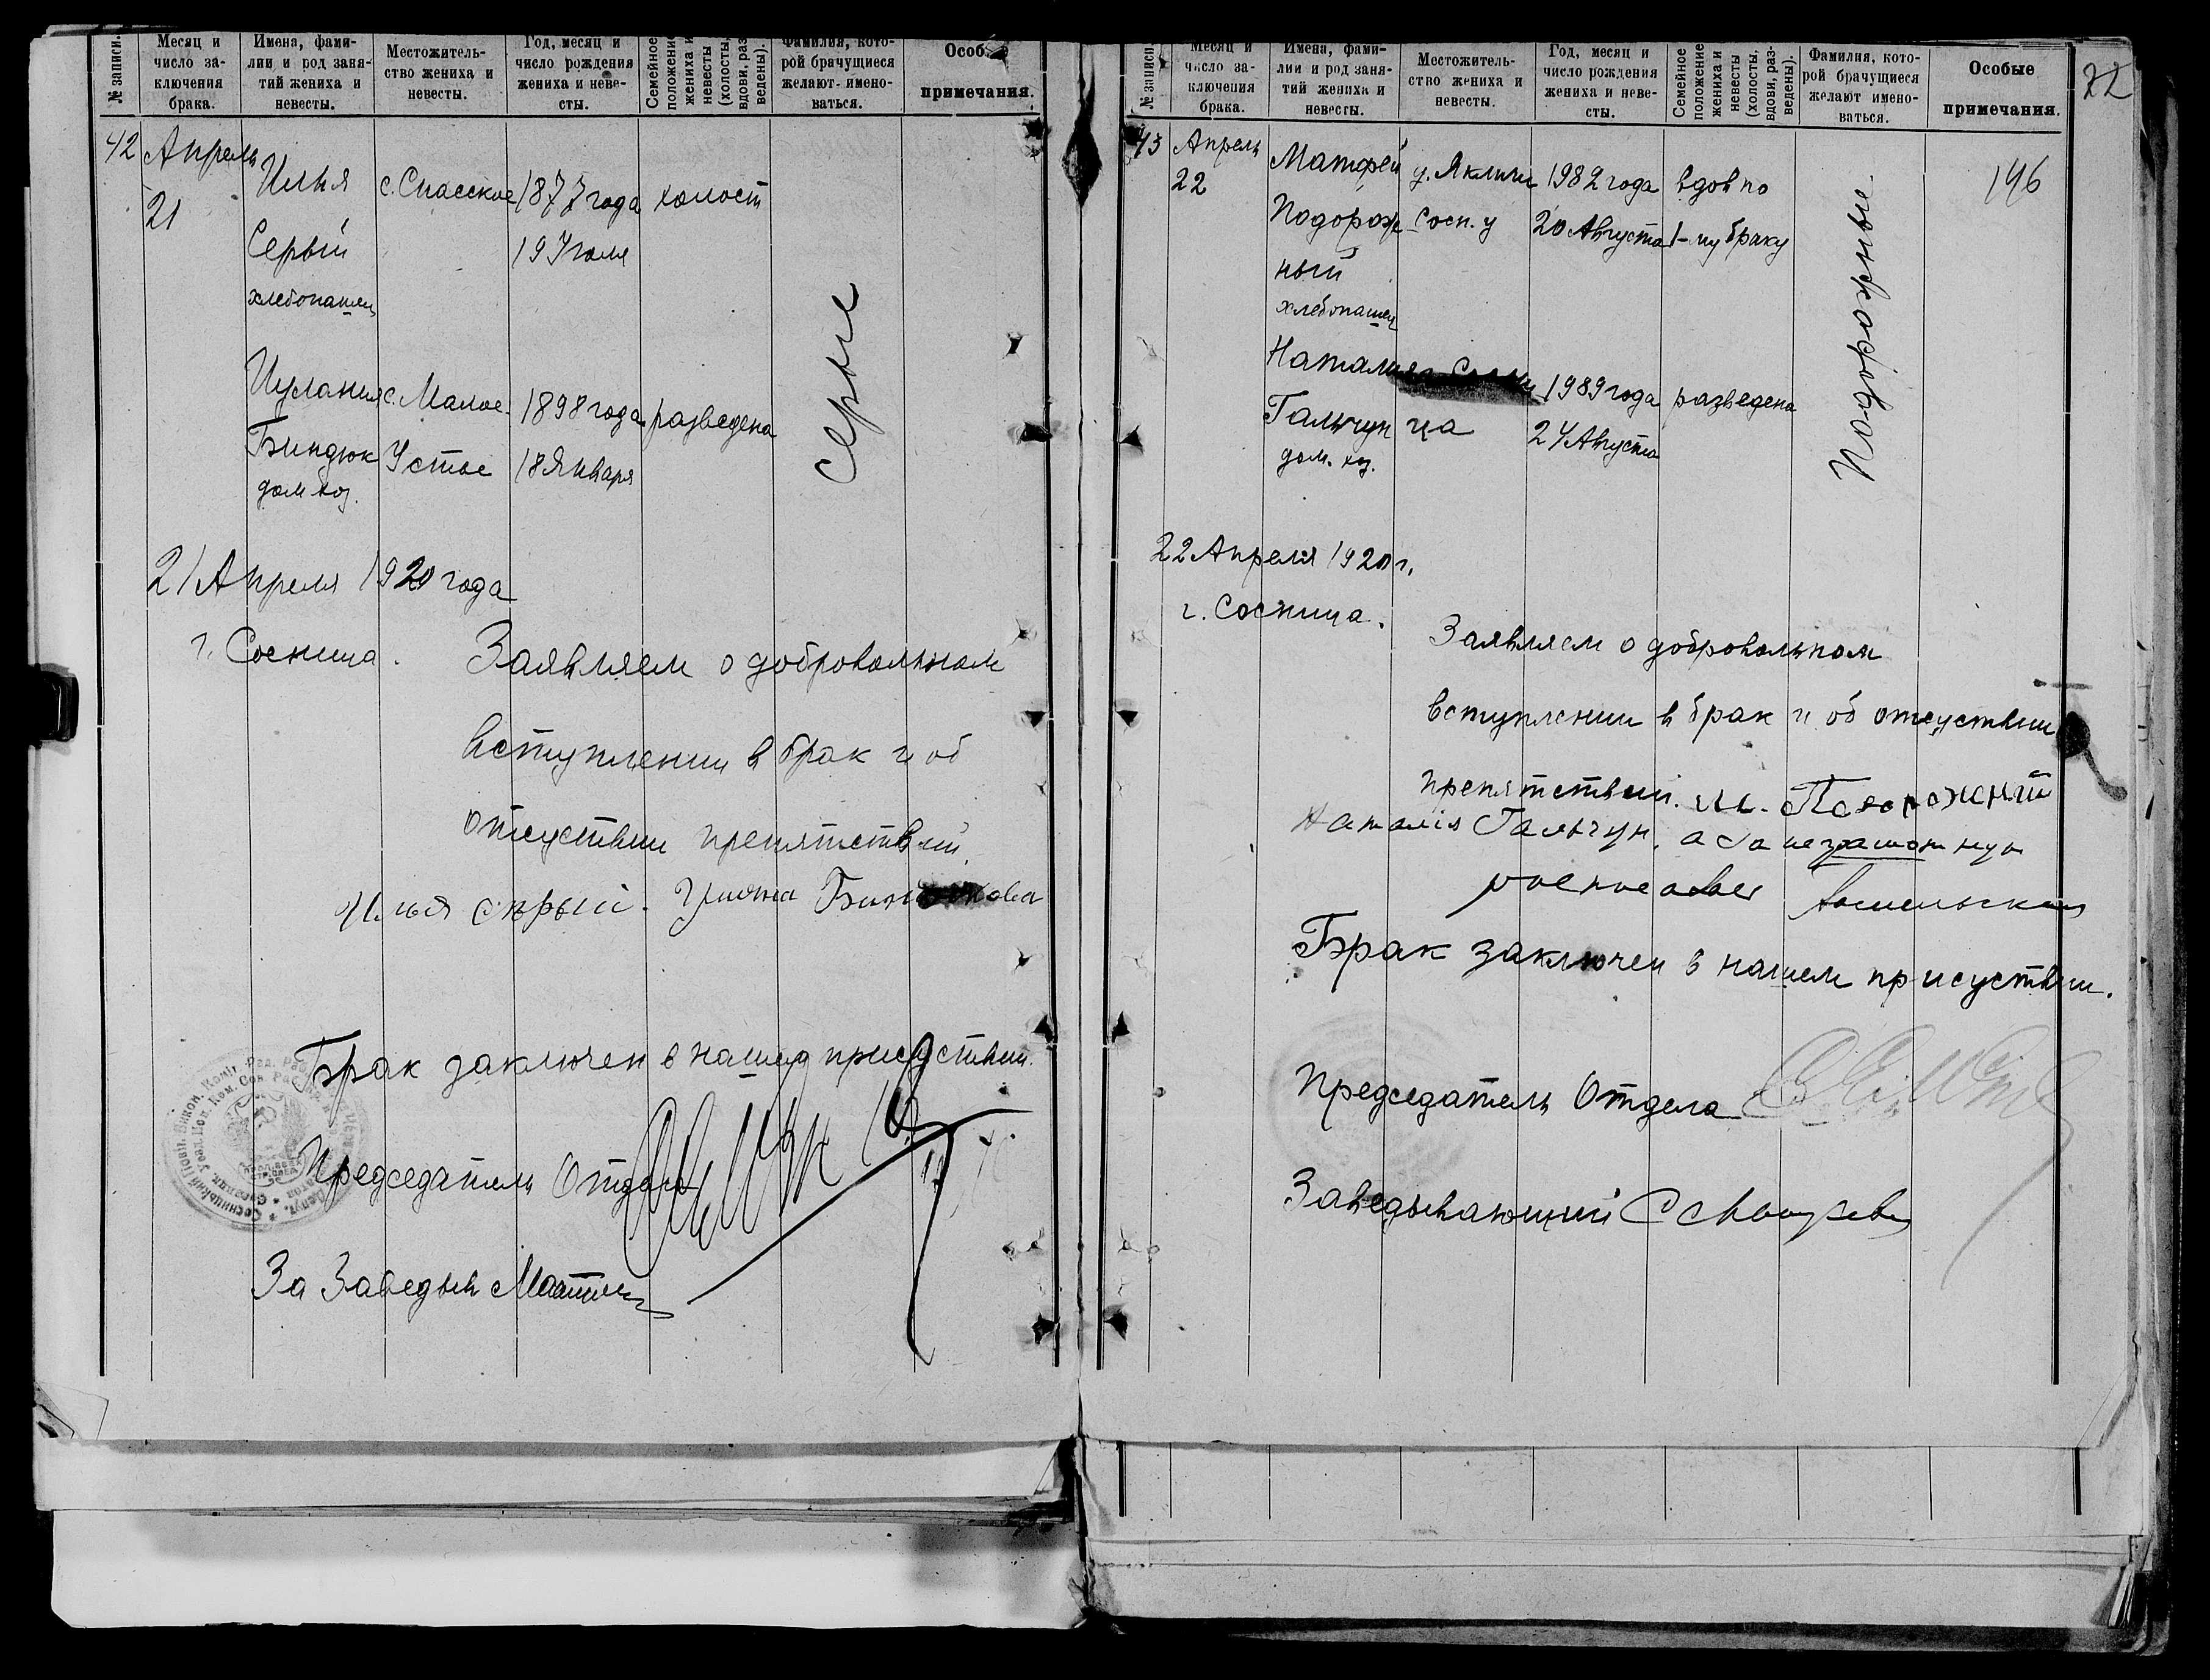 № записи.
Месяц и число заключения брака.
Имена, фамилии и род занятий жениха и невесты.
Местожительство жениха и невесты.
Год, месяц и число рождения жениха и невесты.
Семейное положение жениха и невесты (холосты, вдовы, разведены).
Фамилия, которой брачущиеся желают именоваться.
примечания.
42
Апрель
21
Илья
Серый
хлебопашец
с. Спасское
1877 года
19 Июля
холост
с. Малое
Устье
Биндюк
дом. хоз.
1898 года
18 Января
разведена
Серые
21 Апреля 1920 года
г. Сосница.
Заявляем о добровольном
вступлении в брак и об
отсуствии препятствий.
Илья Сѣрый.
Брак заключен в нашем присуствии.
Председатель Отдела
За Заведыв
№ записи.
Месяц и число заключения брака.
Имена, фамилии и род занятий жениха и невесты.
Местожительство жениха и невесты.
Год, месяц и число рождения жениха и невесты.
Семейное положение жениха и невесты (холосты, вдовы, разведены).
Фамилия, которой брачущиеся желают именоваться.
Особые примечания.
22
43
Апрель
22
Матфей
Подорож
ный
хлебопашец
Сосн. у
1982 года
20 Августа
вдов по
1-му браку
196
Наталия
Гальчун
дом. хоз.
ца
1989 года
24 Августа
разведена
Подорожные
22 Апреля 1920 г.
г. Сосница.
Заявляем о добровольном
вступлении в брак и об отсуствии
препятствий. М. Подорожний
Наталія Гальчун, а за неграмотную
Брак заключен в нашем присуствии.
Председатель Отдела
Заведывающий